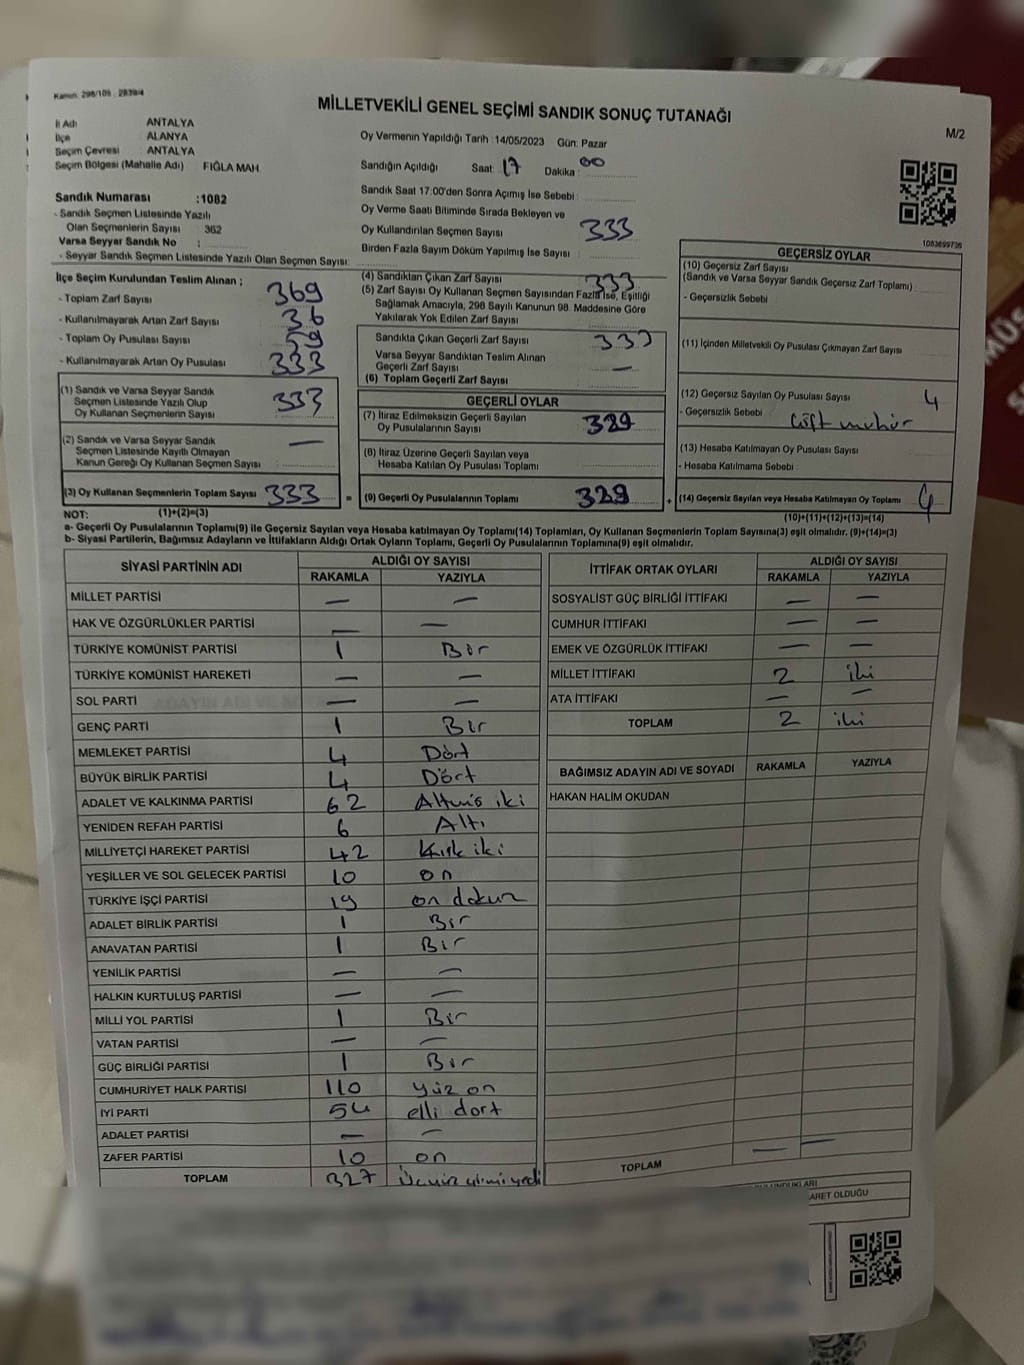 Kanun: 298/105 , 2839/4
MİLLETVEKİLİ GENEL SEÇİMİ SANDIK SONUÇ TUTANAĞI
M/2
İl Adı ANTALYA
İlçe ALANYA
Seçim Çevresi ANTALYA
Seçim Bölgesi (Mahalle Adı) FIĞLA MAH
Oy Vermenin Yapıldığı Tarih :14/05/2023 Gün: Pazar
Sandığın Açıldığı Saat: 17 Dakika : 00
Sandık Saat 17:00'den Sonra Açımış İse Sebebi :
Sandık Numarası :1082
- Sandık Seçmen Listesinde Yazılı
Olan Seçmenlerin Sayısı : 362
Varsa Seyyar Sandık No :
- Seyyar Sandık Seçmen Listesinde Yazılı Olan Seçmen Sayısı:
Oy Verme Saati Bitiminde Sırada Bekleyen ve
Oy Kullandırılan Seçmen Sayısı 333
Birden Fazla Sayım Döküm Yapılmış İse Sayısı :
1083699736
İlçe Seçim Kurulundan Teslim Alınan ;
- Toplam Zarf Sayısı 369
- Kullanılmayarak Artan Zarf Sayısı 36
- Toplam Oy Pusulası Sayısı 59
- Kullanılmayarak Artan Oy Pusulası 333
(1) Sandık ve Varsa Seyyar Sandık
Seçmen Listesinde Yazılı Olup
Oy Kullanan Seçmenlerin Sayısı 333
(2) Sandık ve Varsa Seyyar Sandık
Seçmen Listesinde Kayıtlı Olmayan
Kanun Gereği Oy Kullanan Seçmen Sayısı —
(3) Oy Kullanan Seçmenlerin Toplam Sayısı 333 =
(4) Sandıktan Çıkan Zarf Sayısı 333
(5) Zarf Sayısı Oy Kullanan Seçmen Sayısından Fazla İse, Eşitliği
Sağlamak Amacıyla, 298 Sayılı Kanunun 98. Maddesine Göre
Yakılarak Yok Edilen Zarf Sayısı
Sandıkta Çıkan Geçerli Zarf Sayısı 333
Varsa Seyyar Sandıktan Teslim Alınan
Geçerli Zarf Sayısı —
(6) Toplam Geçerli Zarf Sayısı
GEÇERLİ OYLAR
(7) İtiraz Edilmeksizin Geçerli Sayılan
Oy Pusulalarının Sayısı 329
(8) İtiraz Üzerine Geçerli Sayılan veya
Hesaba Katılan Oy Pusulası Toplamı
(9) Geçerli Oy Pusulalarının Toplamı 329 +
GEÇERSİZ OYLAR
(10) Geçersiz Zarf Sayısı
(Sandık ve Varsa Seyyar Sandık Geçersiz Zarf Toplamı)
- Geçersizlik Sebebi :
(11) İçinden Milletvekili Oy Pusulası Çıkmayan Zarf Sayısı
(12) Geçersiz Sayılan Oy Pusulası Sayısı 4
- Geçersizlik Sebebi Çift mühür
(13) Hesaba Katılmayan Oy Pusulası Sayısı
- Hesaba Katılmama Sebebi :
(14) Geçersiz Sayılan veya Hesaba Katılmayan Oy Toplamı 4
NOT: (1)+(2)=(3) (10)+(11)+(12)+(13)=(14)
a- Geçerli Oy Pusulalarının Toplamı(9) ile Geçersiz Sayılan veya Hesaba katılmayan Oy Toplamı(14) Toplamları, Oy Kullanan Seçmenlerin Toplam Sayısına(3) eşit olmalıdır. (9)+(14)=(3)
b- Siyasi Partilerin, Bağımsız Adayların ve İttifakların Aldığı Ortak Oyların Toplamı, Geçerli Oy Pusulalarının Toplamına(9) eşit olmalıdır.
SİYASİ PARTİNİN ADI ALDIĞI OY SAYISI
RAKAMLA YAZIYLA
MİLLET PARTİSİ — —
HAK VE ÖZGÜRLÜKLER PARTİSİ — —
TÜRKİYE KOMÜNİST PARTİSİ 1 Bir
TÜRKİYE KOMÜNİST HAREKETİ — —
SOL PARTİ — —
GENÇ PARTİ 1 Bir
MEMLEKET PARTİSİ 4 Dört
BÜYÜK BİRLİK PARTİSİ 4 Dört
ADALET VE KALKINMA PARTİSİ 62 Altmış iki
YENİDEN REFAH PARTİSİ 6 Altı
MİLLİYETÇİ HAREKET PARTİSİ 42 Kırk iki
YEŞİLLER VE SOL GELECEK PARTİSİ 10 on
TÜRKİYE İŞÇİ PARTİSİ 19 on dokuz
ADALET BİRLİK PARTİSİ 1 Bir
ANAVATAN PARTİSİ 1 Bir
YENİLİK PARTİSİ — —
HALKIN KURTULUŞ PARTİSİ — —
MİLLİ YOL PARTİSİ 1 Bir
VATAN PARTİSİ — —
GÜÇ BİRLİĞİ PARTİSİ 1 Bir
CUMHURİYET HALK PARTİSİ 110 yüz on
İYİ PARTİ 54 elli dort
ADALET PARTİSİ — —
ZAFER PARTİSİ 10 on
TOPLAM 327 Üçyüz yirmi yedi
İTTİFAK ORTAK OYLARI ALDIĞI OY SAYISI
RAKAMLA YAZIYLA
SOSYALİST GÜÇ BİRLİĞİ İTTİFAKI — —
CUMHUR İTTİFAKI — —
EMEK VE ÖZGÜRLÜK İTTİFAKI — —
MİLLET İTTİFAKI 2 iki
ATA İTTİFAKI — —
TOPLAM 2 iki
BAĞIMSIZ ADAYIN ADI VE SOYADI RAKAMLA YAZIYLA
HAKAN HALİM OKUDAN
TOPLAM — —